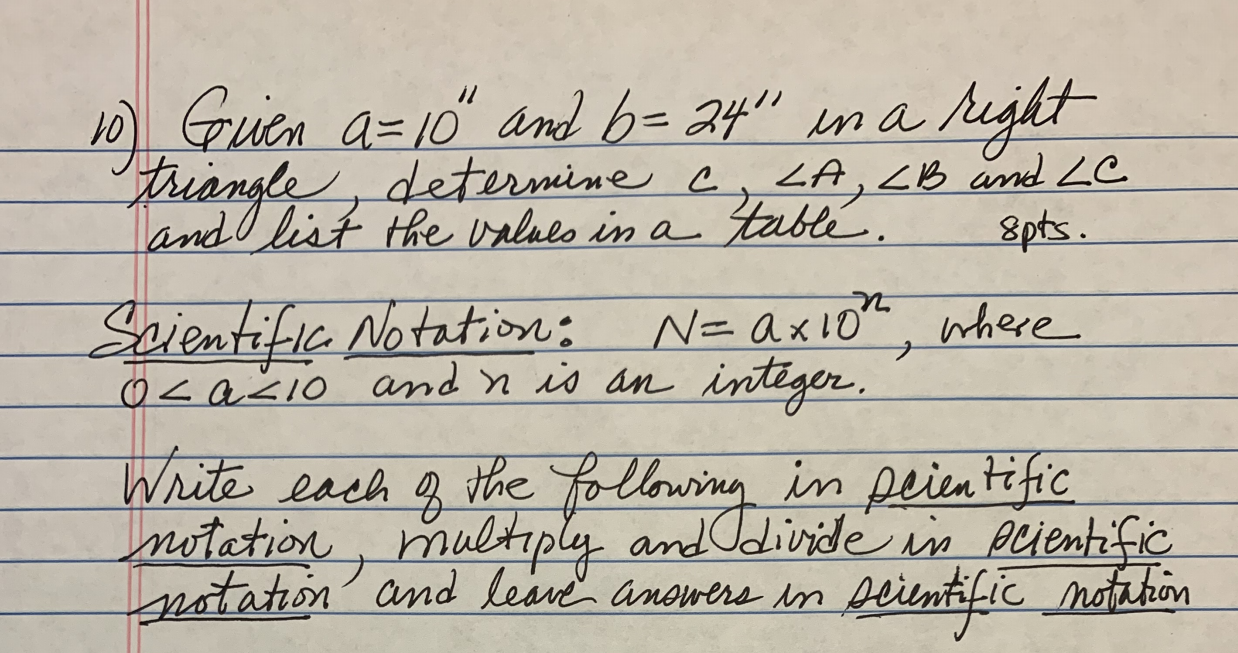 10) Given a=10" and b=24" in a right
triangle, determine c, ∠A, ∠B and ∠C
and list the values in a table. 8pts.
Scientific Notation: N= a x 10ⁿ, where
0<a<10 and n is an integer.
Write each of the following in scientific
notation, multiply and divide in scientific
notation and leave answers in scientific notation